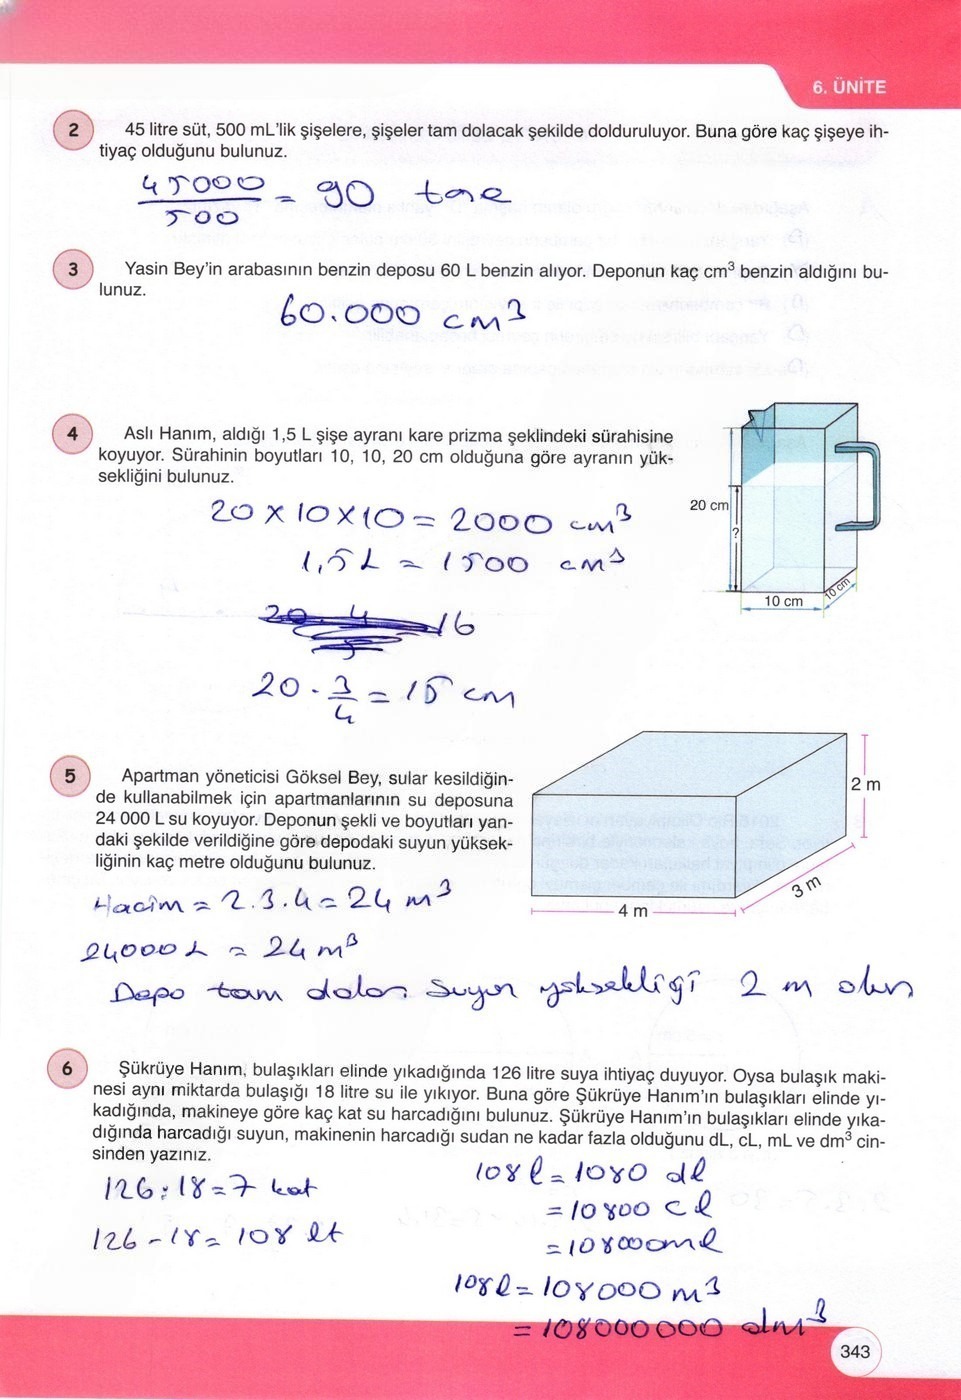 6. ÜNİTE
2
45 litre süt, 500 mL'lik şişelere, şişeler tam dolacak şekilde dolduruluyor. Buna göre kaç şişeye ih-
tiyaç olduğunu bulunuz.
45000 / 500 = 90 tane
3
Yasin Bey'in arabasının benzin deposu 60 L benzin alıyor. Deponun kaç cm³ benzin aldığını bu-
lunuz.
60.000 cm³
4
Aslı Hanım, aldığı 1,5 L şişe ayranı kare prizma şeklindeki sürahisine
koyuyor. Sürahinin boyutları 10, 10, 20 cm olduğuna göre ayranın yük-
sekliğini bulunuz.
20 cm
?
10 cm
10 cm
20 x 10 x 10 = 2000 cm³
1,5 L = 1500 cm³
16
20 . 3/4 = 15 cm
5
Apartman yöneticisi Göksel Bey, sular kesildiğin-
de kullanabilmek için apartmanlarının su deposuna
24 000 L su koyuyor. Deponun şekli ve boyutları yan-
daki şekilde verildiğine göre depodaki suyun yüksek-
liğinin kaç metre olduğunu bulunuz.
2 m
3 m
4 m
Hacim = 2.3.4 = 24 m³
24000 L = 24 m³
Depo tam dolar. Suyun yüksekliği 2 m olur
6
Şükrüye Hanım, bulaşıkları elinde yıkadığında 126 litre suya ihtiyaç duyuyor. Oysa bulaşık maki-
nesi aynı miktarda bulaşığı 18 litre su ile yıkıyor. Buna göre Şükrüye Hanım'ın bulaşıkları elinde yı-
kadığında, makineye göre kaç kat su harcadığını bulunuz. Şükrüye Hanım'ın bulaşıkları elinde yıka-
dığında harcadığı suyun, makinenin harcadığı sudan ne kadar fazla olduğunu dL, cL, mL ve dm³ cin-
sinden yazınız.
126 : 18 = 7 kat
126 - 18 = 108 lt
108 l = 1080 dl
= 10800 cl
= 108000ml
108l = 108000 m³
= 108000000 dm³
343